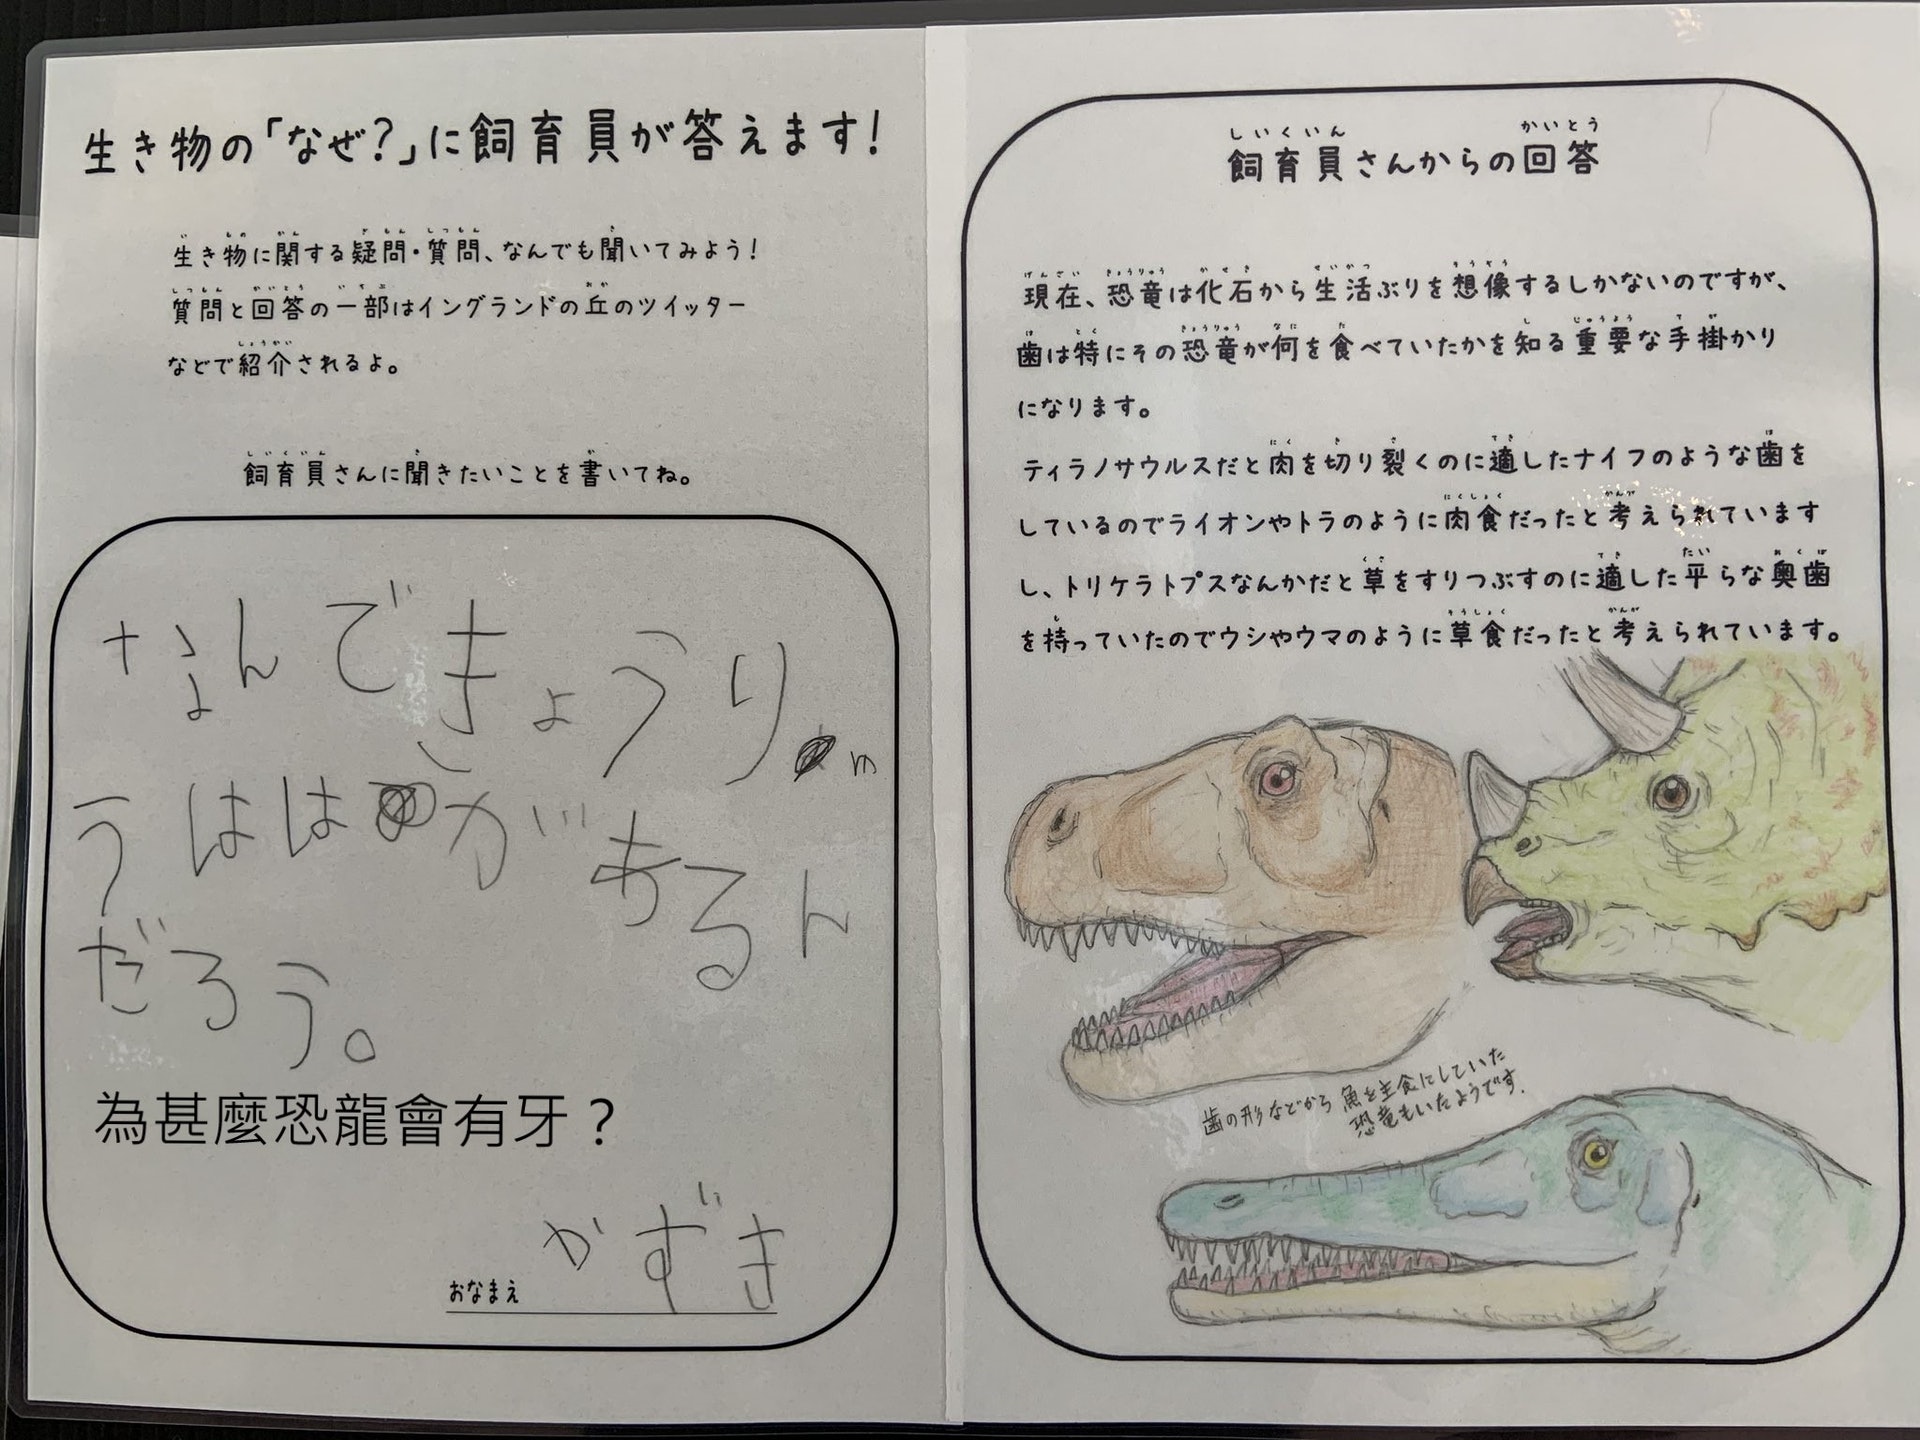 生き物の「なぜ?」に飼育員が答えます!
生き物に関する疑問・質問、なんでも聞いてみよう!
質問と回答の一部はイングランドの丘のツイッター
などで紹介されるよ。
飼育員さんに聞きたいことを書いてね。
なんできょうり
うははがあるん
だろう。
為甚麼恐龍會有牙？
おなまえ かずき
飼育員さんからの回答
現在、恐竜は化石から生活ぶりを想像するしかないのですが、
歯は特にその恐竜が何を食べていたかを知る重要な手掛かり
になります。
ティラノサウルスだと肉を切り裂くのに適したナイフのような歯を
しているのでライオンやトラのように肉食だったと考えられています
し、トリケラトプスなんかだと草をすりつぶすのに適した平らな奥歯
を持っていたのでウシやウマのように草食だったと考えられています。
歯の形などから魚を主食にしていた
恐竜もいたようです.